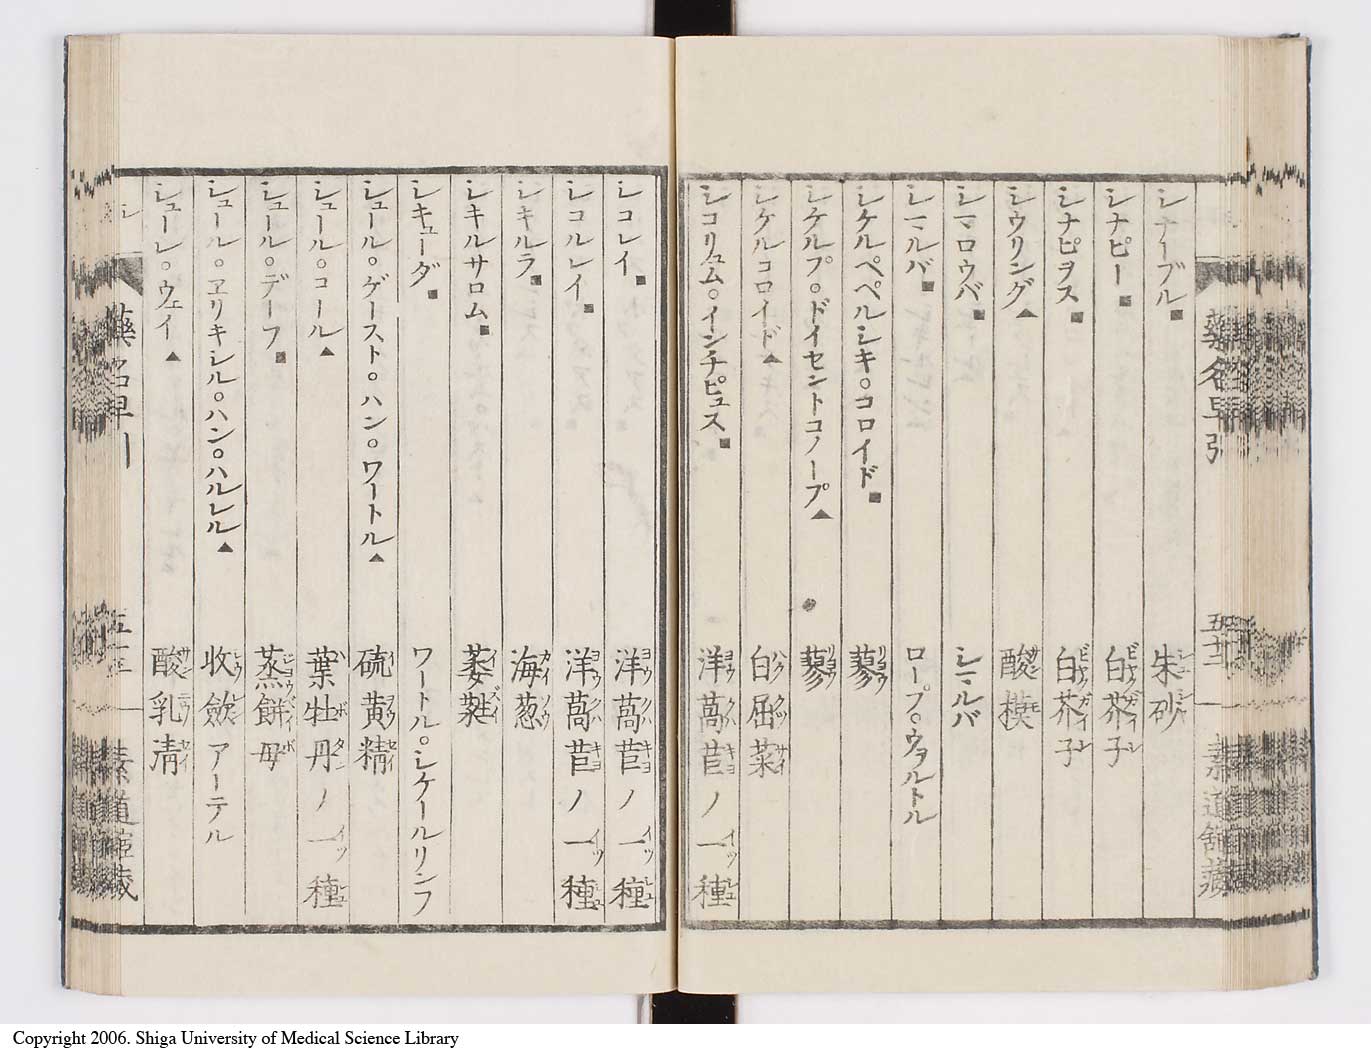 シナーブル■ 朱砂
シナピー■ 白芥子
シナピヲス■ 白芥子
シウリング▲ 酸模
シマロウバ■ シマルバ
シマルバ■ ロープ。ウァルトル
シケルペペルシキ。コロイド■ 蓼
シケルプ。ドイセントコノープ▲ 蓼
シケルコロイド▲ 白屈菜
シコリュム。インチピュス■ 洋萵苣ノ一種
シコレイ■ 洋萵苣ノ一種
シコルレイ■ 洋萵苣ノ一種
シキルラ■ 海葱
シキルサロム■ 萎蕤
シキューダ■ ワートル。シケールリンフ
シュール。ゲースト。ハン。ワートル▲ 硫黄精
シュール。コール▲ 葉牡丹ノ一種
シュール。デーフ■ 蒸餅母
シュール。ヱリキシル。ハン。ハルレル▲ 收斂アーテル
シューレ。ウェイ▲ 酸乳清
藥名早引
五十二
藥名早
五十三
Copyright 2006. Shiga University of Medical Science Library